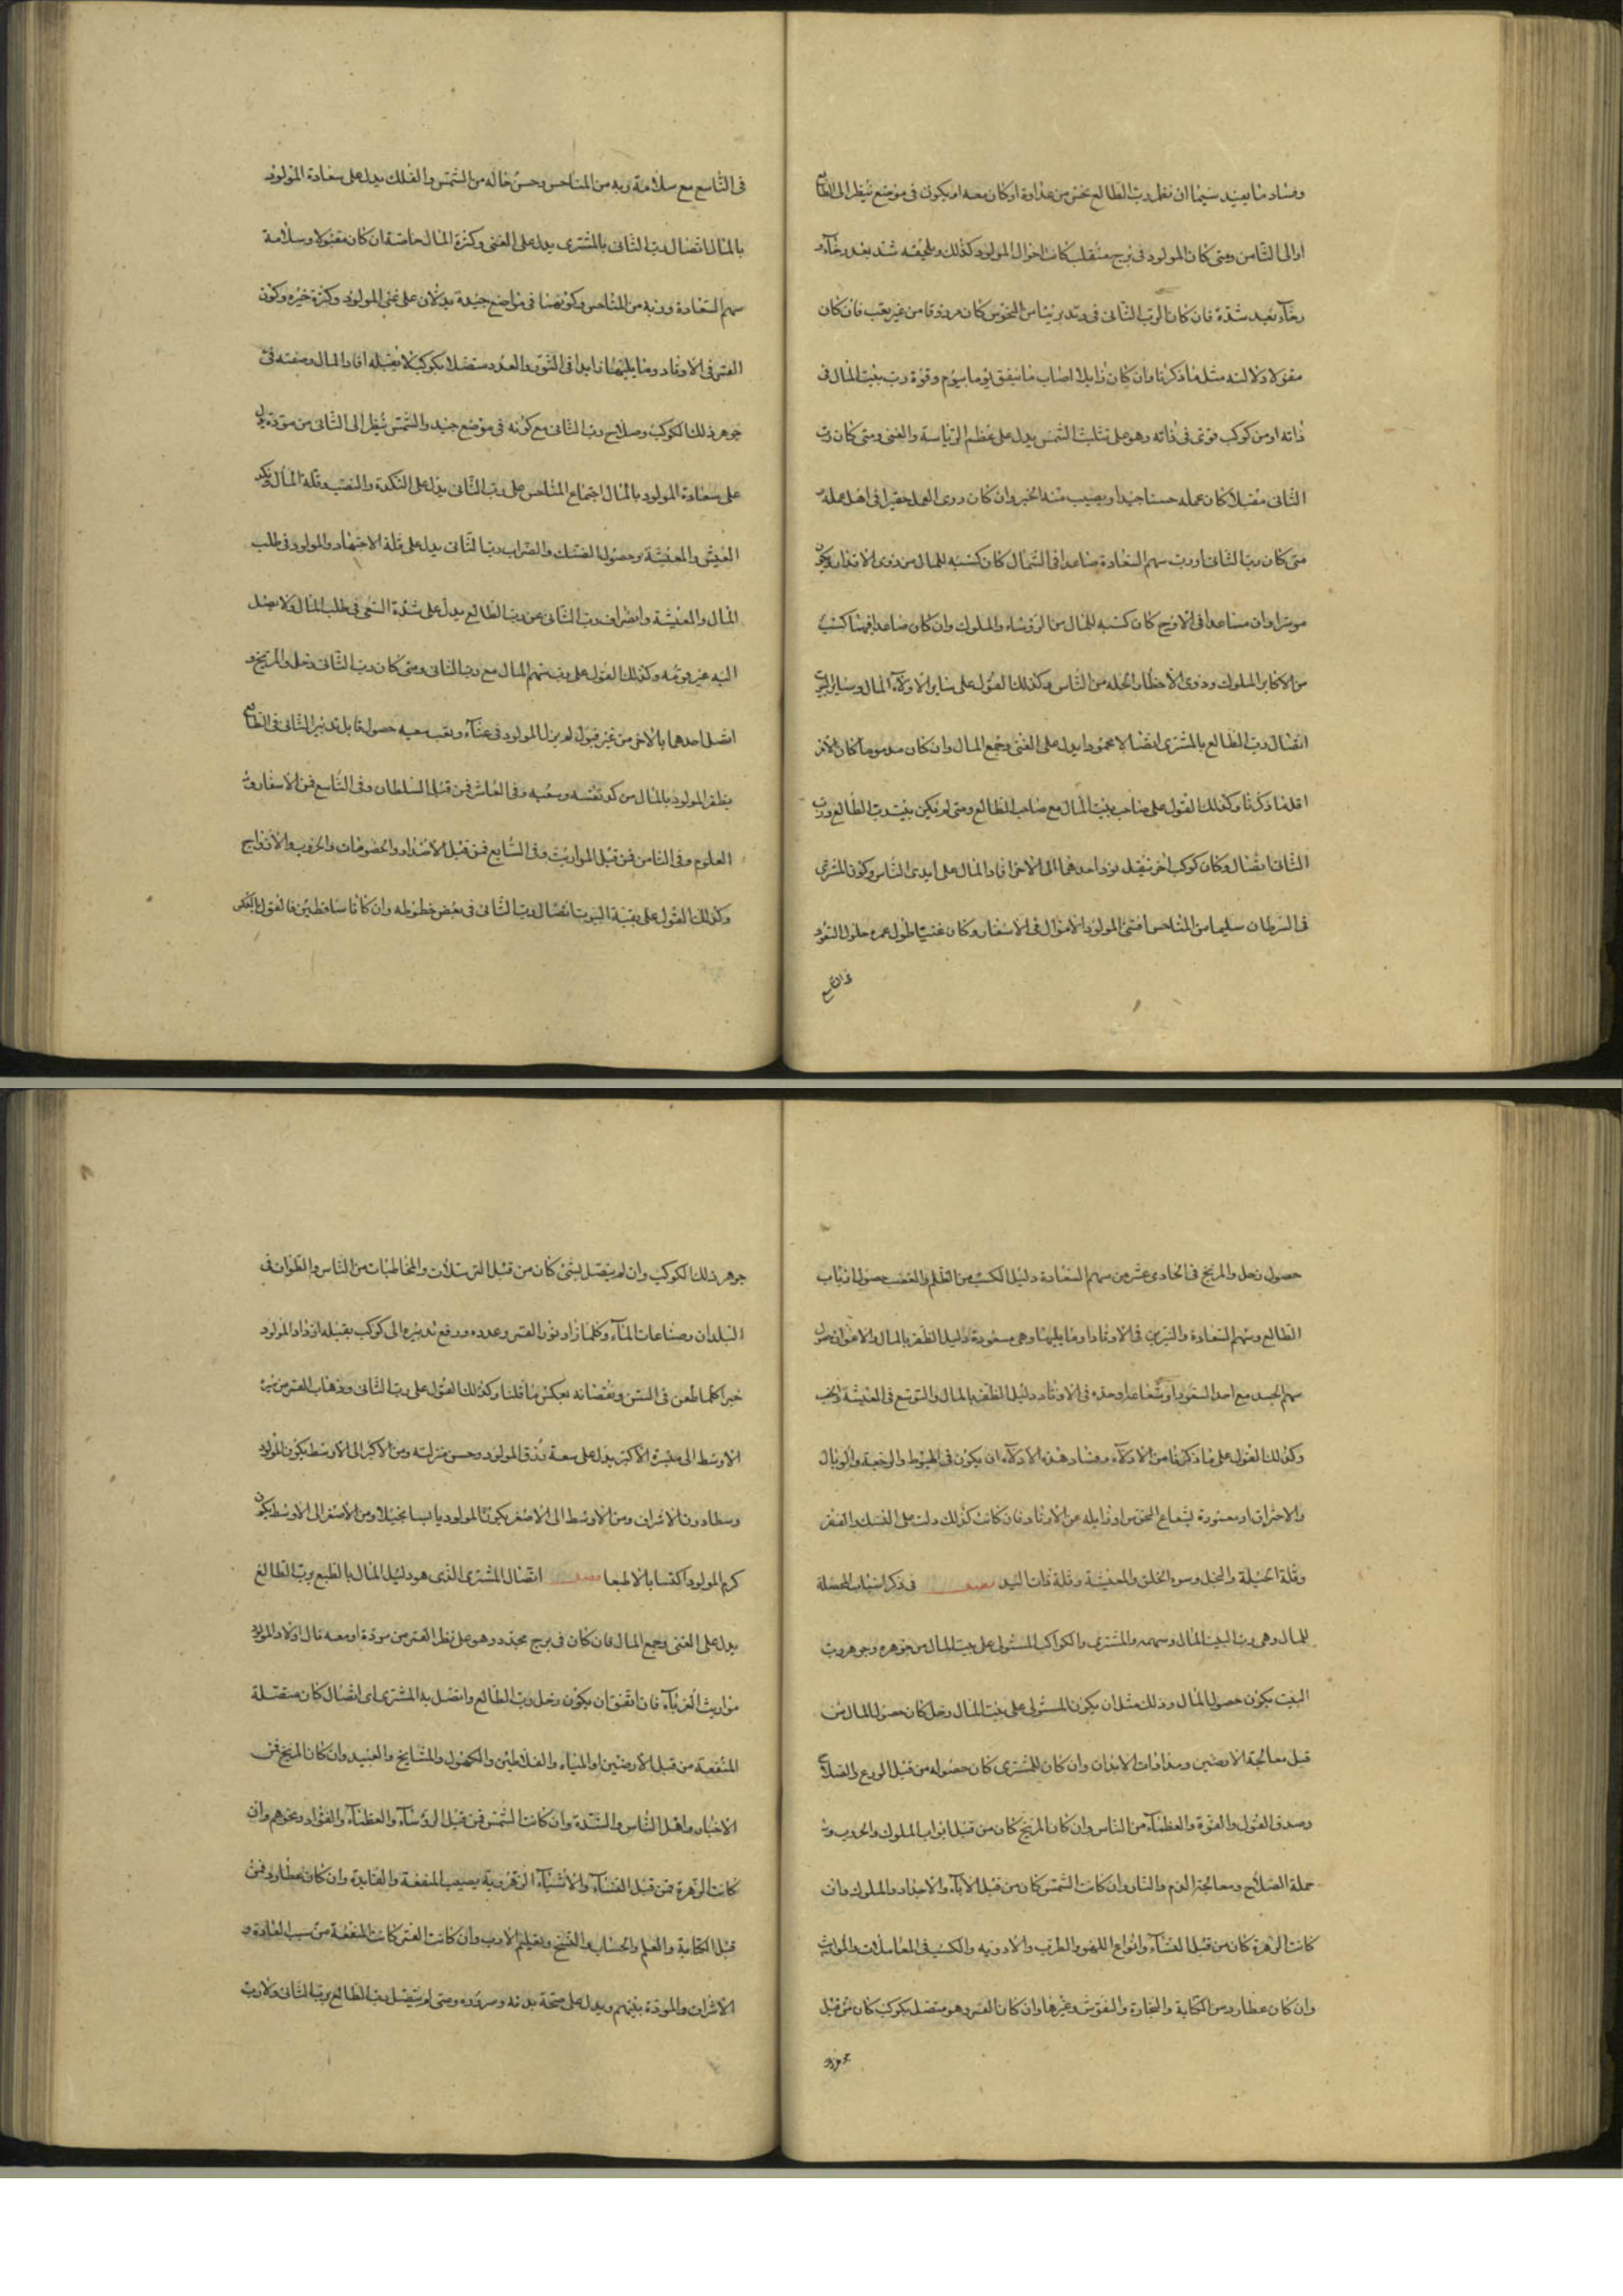 وفساد ما يفيد سيما ان نقل رب الطالع نحس من عداوة او كان معه او يكون في موضع ينظر الى الطالع
او الى الثامن ومتى كان المولود في برج منقلب كانت احوال المولود كذلك ويلحقه شدة بعد رخآء و
رخآء بعد شدة فان كان الرب الثاني في وتد بريئا من النحوس كان مرزوقا من غير تعب فان كان
مقبولا دلالته مثل ما ذكرنا وان كان زايلا اصاب ما ينفق يوما بيوم وقوة رب بيت المال في
ذاته او من كوكب قوى في ذاته وهو على تثليث الشمس يدل على عظم الرياسة والغنى ومتى كان رب
الثاني مقبلا كان عمله حسنا جيدا ويصيب منه الخير وان كان ردى العمل حقيرا في اهل عمله و
متى كان رب الثاني او رب سهم السعادة صاعدا في الشمال كان كسبه للمال من ذوى الاقدار ويكون
موسرا وان صاعدا في الاوج كان كسبه للمال من الرؤساء والملوك وان كان صاعدا فيهما كسب
من الاكابر الملوك وذوى الاخطار الجله من الناس وكذلك القول على ساير الادلاء المال وساير البيوت
اتصال رب الطالع بالمشترى اتصالا محمودا يدل على الغنى وجمع المال وان كان مذموما كان الامر
اقل مما ذكرنا وكذلك القول على صاحب بيت المال مع صاحب الطالع ومتى لم يكن بين رب الطالع ورب
الثاني اتصال وكان كوكب اخر ينقل نور احدهما الى الاخر افاد المال على ايدى الناس وكون المشترى
في السرطان سليما من المناحس اقتنى المولود الاموال في الاسفار وكان غنيا طول عمره حلول السعود
في التاسع
في التاسع مع سلامة ربه من المناحس وحسن حاله من الشمس والفلك يدل على سعادة المولود
بالمال اتصال رب الثاني بالمشترى يدل على الغنى وكثرة المال خاصة ان كان مقبولا وسلامة
سهم السعادة وربه من المناحس وكونهما في مواضع جيدة يدلان على غنى المولود وكثرة خيره وكون
القمر في الاوتاد وما يليها زايدا في النور والعدد متصلا بكوكب لا يقبله افاد المال ومنفعته في
جوهر ذلك الكوكب وصلاح رب الثاني مع كونه في موضع جيد والشمس ينظر الى الثاني من مودة يدل
على سعادة المولود بالمال اجتماع المناحس على رب الثاني يدل على النكد والنصب وقلة المال ونكد
العيش والمعيشة وحصول الضنك والضراب رب الثاني يدل على قلة الاجتهاد والمولود في طلب
المال والمعيشة وانصراف رب الثاني عن رب الطالع يدل على شدة السعى في طلب المال ولا يصل
اليه غير قوته وكذلك القول على رب سهم المال مع رب الثاني ومتى كان رب الثاني زحل والمريخ و
اتصل احدهما بالاخر من غير قبول لم يزل المولود في عناء وتعب معيشة حصول قابل تدبير الثاني في الطالع
يظفر المولود بالمال من كد نفسه وسعيه وفي العاشر فمن قبل السلطان وفي التاسع فمن الاسفار و
العلوم وفي الثامن فمن قبل المواريث وفي السابع فمن قبل الاضداد والخصومات والحروب والازواج
وكذلك القول على بقية البيوت اتصال رب الثاني في بعض حظوظه وان كانا ساقطين فالقول بالعكس
حصول زحل والمريخ في الحادى عشر من سهم السعادة دليل الكسب من الظلم والغصب حصول ارباب
الطالع وسهم السعادة والنيرين في الاوتاد او ما يليها وهى مسعودة دليل الظفر بالمال والاعوان حصول
سهم الجسد مع احد السعود او شعاعه او حده في الاوتاد دليل الظفر بالمال والتوسع في المعيشة والخصب
وكذلك القول على ما ذكرنا من الادلآء وفساد هذه الادلآء ان يكون في الهبوط والرجعة والوبال
والاحتراق او مضرورة بشعاع النحوس او زايله عن الاوتاد فان كانت كذلك دلت على الضنك والفقر
وقلة الحيلة والبخل وسوء الخلق والمعيشة وقلة ذات اليد فصل في ذكر اسباب المحصلة
للمال وهى رب البيت المال وسهمه والمشترى والكواكب المستولى على بيت المال من جوهره وجوهر رب
البيت يكون حصول المال وذلك مثل ان يكون المستولى على بيت المال زحل كان حصول المال من
قبل معالجة الارضين ومداواة الابدان وان كان المشترى كان حصوله من قبل الورع والصلاح
وصدق القول والقوة والعظمآء من الناس وان كان المريخ كان من قبل ابواب الملوك والحروب و
حملة السلاح ومعالجة الدم والنار وان كانت الشمس كان من قبل الآبآء والاجداد والملوك وان
كانت الزهرة كان من قبل النسآء وانواع اللهو والطرب والادويه والكسب في المعاملات والمواريث
وان كان عطارد من الكتابة والتجارة والنقوش وغيرها وان كان القمر وهو متصل بكوكب كان من قبل
جوهر ذلك
جوهر ذلك الكوكب وان لم يتصل بشئ كان من قبل الترسلات والمخاطبات من الناس والطواف في
البلدان وصناعات المآء وكلما زاد نور القمر وعدده ورفع تدبيره الى كوكب يقبله ازداد المولود
خيرا كلما طعن في السن ونقصانه بعكس ما قلنا وكذلك القول على رب الثاني وذهاب القمر من نيره
الاوسط الى نيره الاكبر يدل على سعة رزق المولود وحسن منزلته ومن الاكبر الى الاوسط يكون المولود
وسطا دون الاشراف ومن الاوسط الى الاصغر يكون المولود يابسا بخيلا ومن الاصغر الى الاوسط يكون
كرم المولود اكتسابا لا طبعا فصل اتصال المشترى الذى هو دليل المال بالطبع برب الطالع
يدل على الغنى وجمع المال فان كان في برج مجسد وهو على نظر القمر من مودة او معه نال اولاد المولود
مواريث الغرباء فان اتفق ان يكون زحل رب الطالع واتصل به المشترى اى اتصال كان متصلة
المنفعة من قبل الارضين او المياه والفلاحين والكهول والمشايخ والعبيد وان كان المريخ فمن
الاخبار واهل الناس والشدة وان كانت الشمس فمن قبل الرؤسآء والعظمآء والقواد ونحوهم وان
كانت الزهرة فمن قبل النسآء والاشيآء الزهروية يصيب المنفعة والفايدة وان كان عطارد فمن
قبل الكتابة والعلم والحساب والنسخ وتعليم الادب وان كانت القمر كانت المنفعة من سبب العادة و
الاشراف والمودة بينهم ويدل على صحة بدنه وسروره ومتى لم يتصل رب الطالع برب الثاني ولا رب